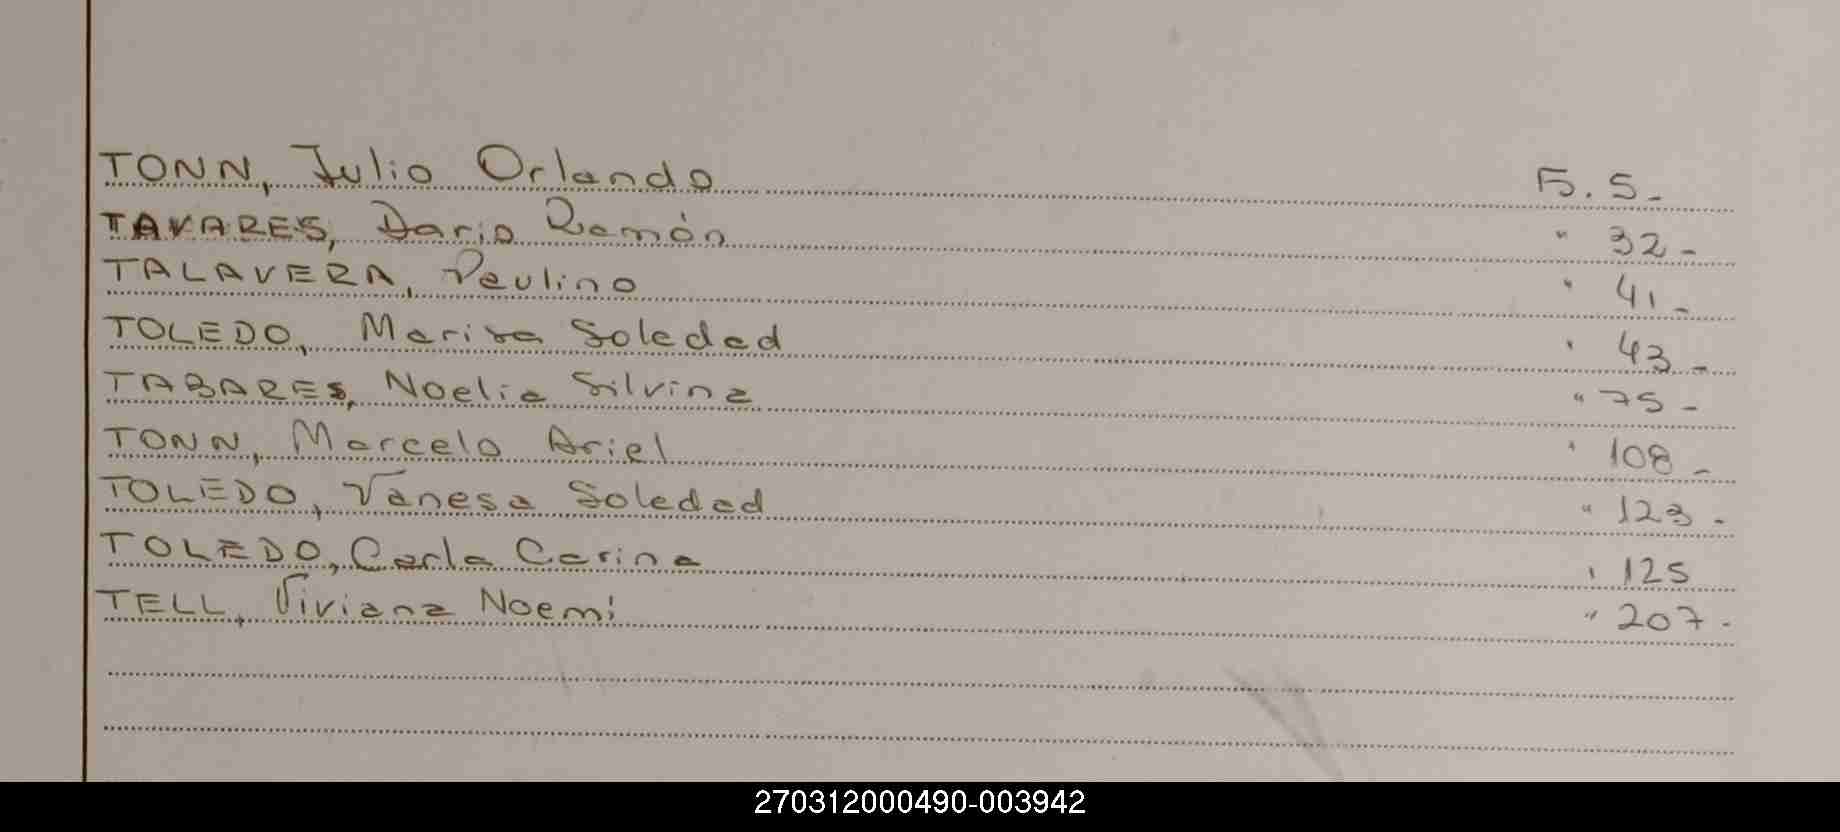 TONN, Julio Orlando Fs. 5-
TAVARES, Dario Ramón " 32-
TALAVERA, Paulino " 41-
TOLEDO, Marisa Soledad " 43-
TABARES, Noelia Silvina " 75-
TONN, Marcelo Ariel " 108-
TOLEDO, Vanesa Soledad " 123-
TOLEDO, Carla Carina " 125
TELL, Viviana Noemí " 207-
270312000490-003942